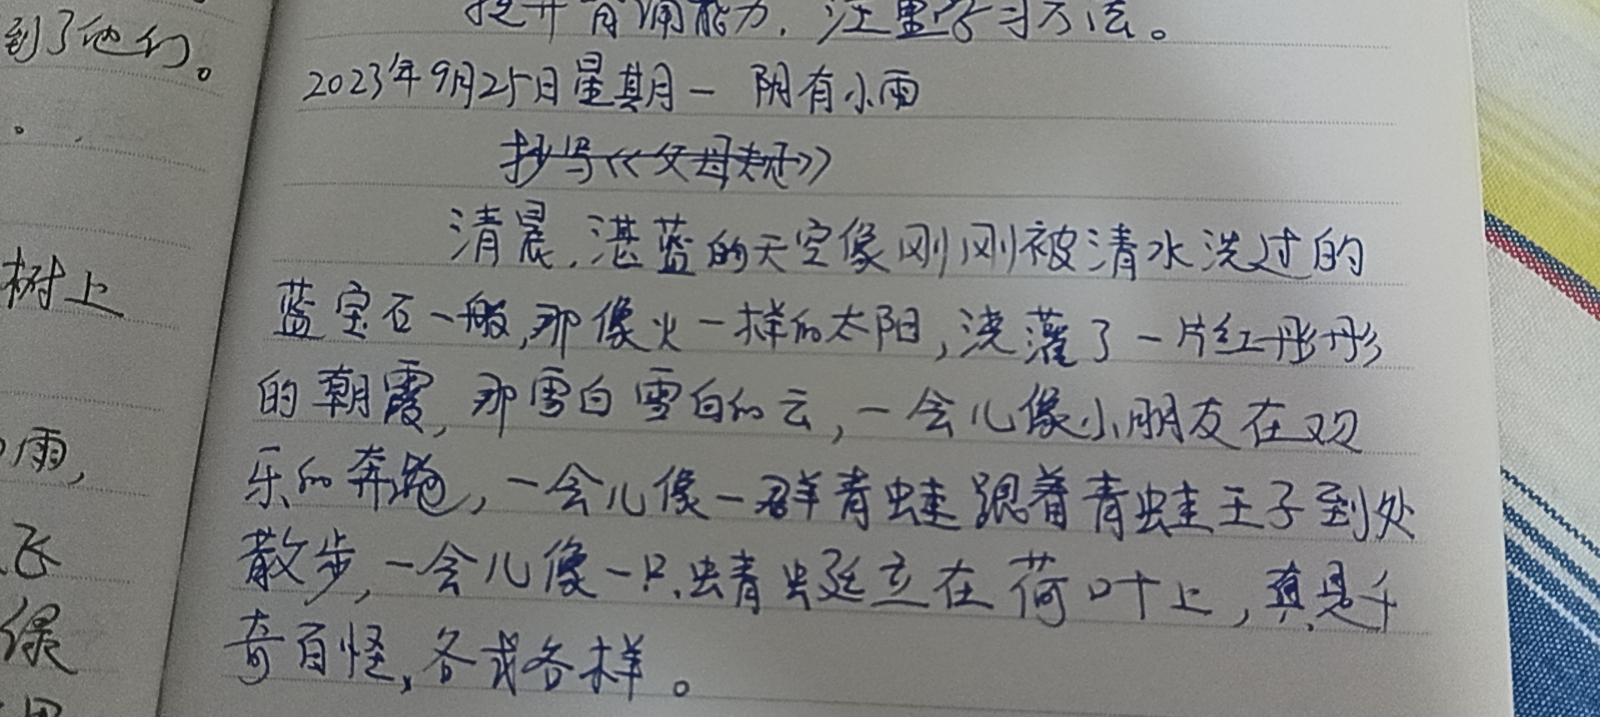 到了他们。
树上
雨,
飞
绿
提升背诵能力,注重学习方法。
2023年9月25日星期一 阴有小雨
抄写《父母规》
清晨,湛蓝的天空像刚刚被清水洗过的
蓝宝石一般,那像火一样的太阳,浇灌了一片红彤彤
的朝霞,那雪白雪白的云,一会儿像小朋友在欢
乐的奔跑,一会儿像一群青蛙跟着青蛙王子到处
散步,一会儿像一只蜻蜓立在荷叶上,真是千
奇百怪,各式各样。